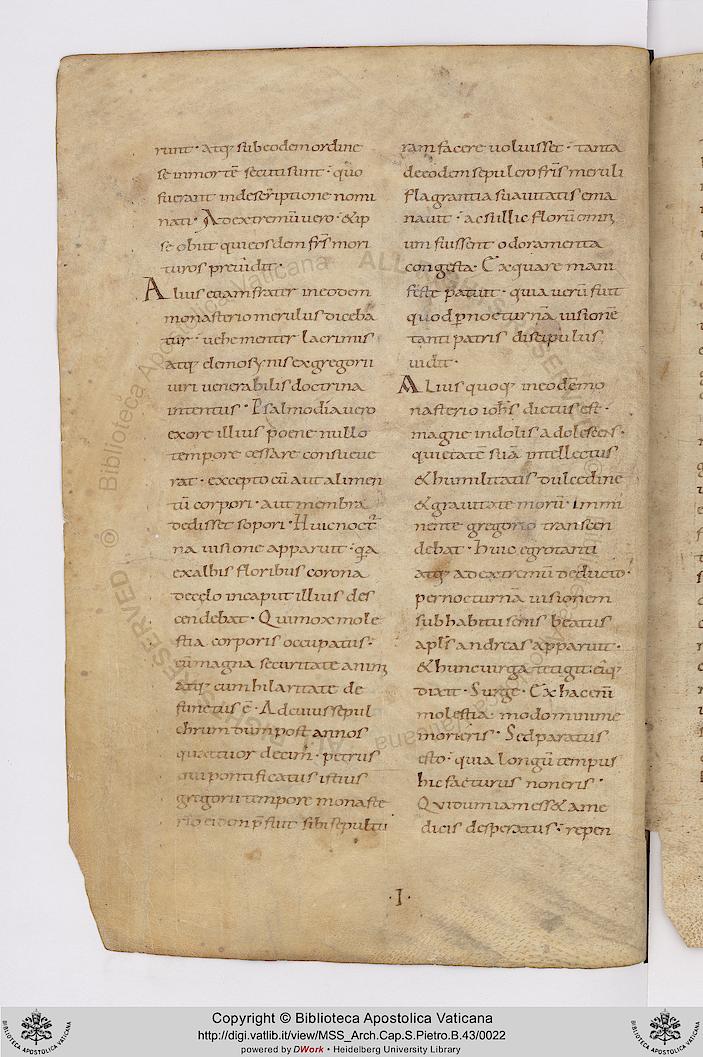 runt · atq; subeodemordine
seinmortē secutisunt · quo
fuerant indescriptione nomi
nati · Adextremū uero · &ip
se obiit quieosdem frs̄ mori
turos preuidit ·
Alius etiam frater ineodem
monasterio merulus dicebā
tur · uehementer lacrimis
atq; elemosynis exgregorii
uiri uenerabilis doctrina
intentus · Psalmodia uero
exore illius poene nullo
tempore cessare consueue
rat · excepto cū aut alimen
tū corpori · aut membra
dedisset sopori · Huic noct
na uisione apparuit · q̄a
exalbis floribus corona
decęlo incaput illius des
cendebat · Quimox mole
stia corporis occupatus ·
cū magna securitate animi
atq; cum hilaritate de
functus ē · Adcuius sepul
chrum dum post annos
quattuor decim · petrus
qui pontificatus istius
gregorii tempore monaste
rio eidem p̄fuit sibi sepultu
ram facere uoluisset · tanta
deeodem sepulcro frīs meruli
flagrantia suauitatis ema
nauit · acsi illic florū omni
um fuissent odoramenta
congesta · Ex qua re mani
feste patuit · quia uerū fuit
quod p nocturna uisione
tanti patris discipulus
uidit ·
Alius quoq; ineodēmo
nasterio iohs̄ dictus est ·
magne indolis adolescēs ·
qui etatē suā intellectus
& humilitatis dulcedine
& grauitate morū · immi
nente gregorio transcen
debat · huic egrotanti
atq; adextremū deducto ·
per nocturnā uisionem
sub habitu senis beatus
apls̄ andreas apparuit ·
& hunc uirga tetigit · eiq;
dixit · Surge · Ex hac enī
molestia modo minime
morieris · Sed paratus
esto · quia longū tempus
hic facturus non eris ·
Qui dum iam ess& a me
dicis desperatus · repen
· I ·
Copyright © Biblioteca Apostolica Vaticana
http://digi.vatlib.it/view/MSS_Arch.Cap.S.Pietro.B.43/0022
powered by DWork • Heidelberg University Library